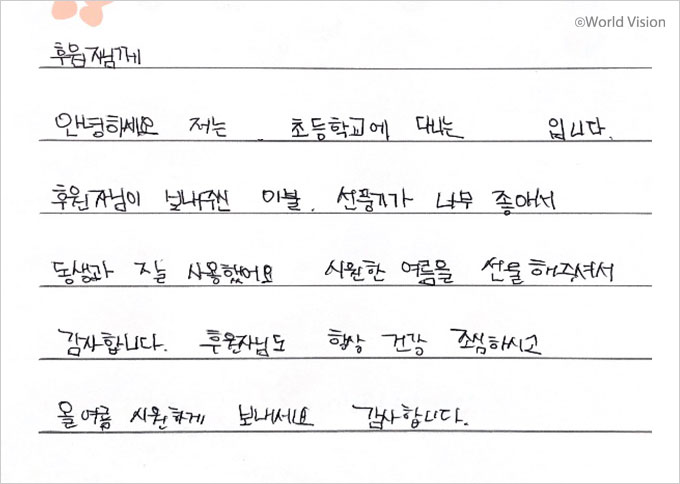 ©World Vision
후원자님께
안녕하세요 저는 초등학교에 다니는 입니다.
후원자님이 보내주신 이불, 선풍기가 너무 좋아서
동생과 잘 사용했어요 시원한 여름을 선물해주셔서
감사합니다. 후원자님도 항상 건강 조심하시고
올여름 시원하게 보내세요 감사합니다.